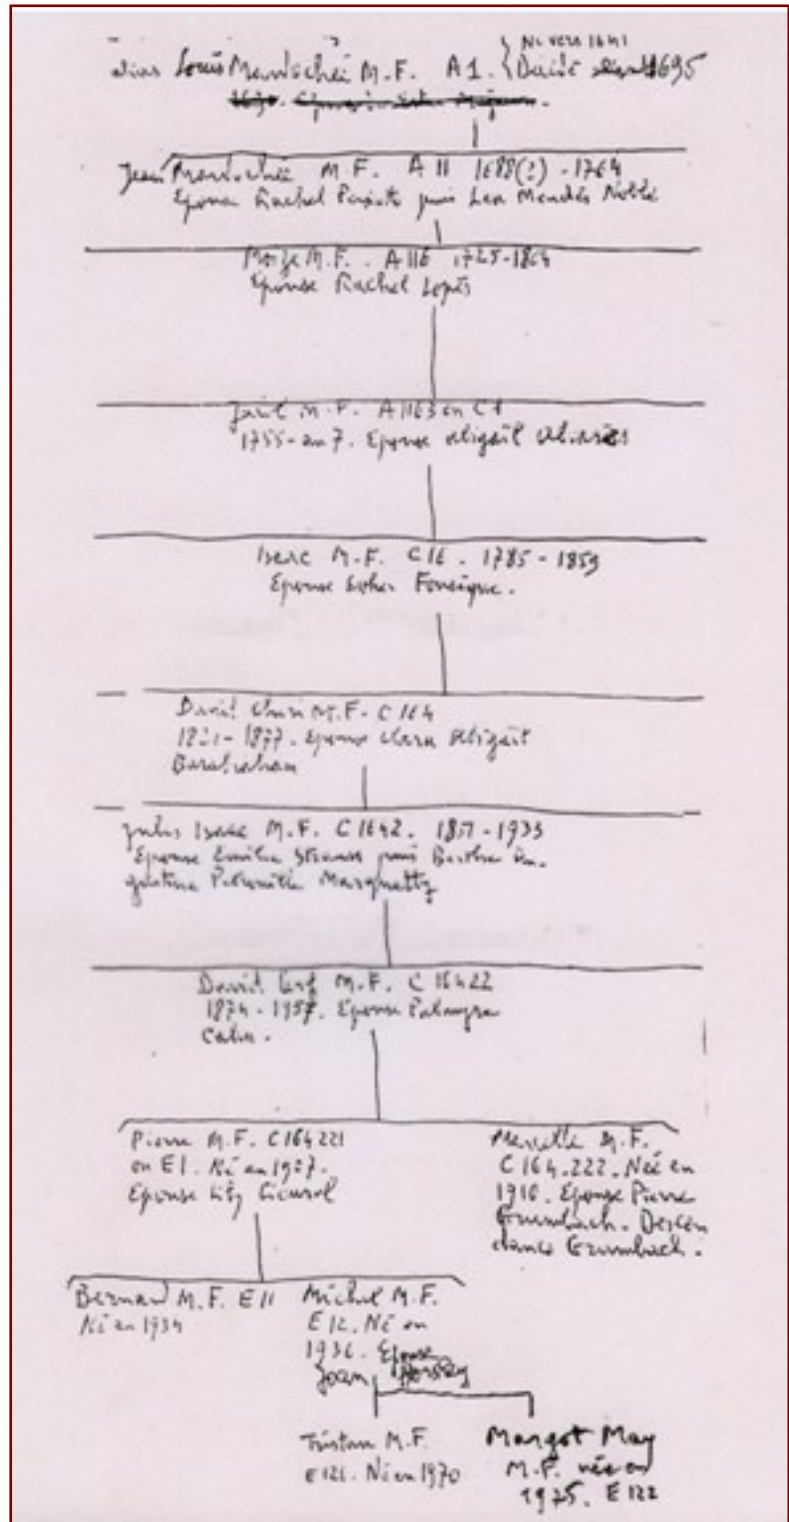 Né vers 1641
alias Louis Manaschéi M.F. A1. Décédé 1695
Jean Manaschéi M.F. A11 1688(?) - 1764
Epouse Rachel Peixoto puis Lea Mendès Noblé
Moïze M.F. A116 1725-1804
Epouse Rachel Lopès
M.F. A1163 ou C1
1755 - an 7. Epouse Abigaïl Alvarès
Isaac M.F. C16. 1785 - 1859
Epouse Esther Fonsèque.
David M.F. C164
1877. Epouse Clara Abigaïl
Jules Isaac M.F. C1642. 1851-1933
Epouse Emilie Strauss puis Berthe Au-
gustine Marquetty
David M.F. C16422
1874 - 1957. Epouse Palmyre
Cahn.
Pierre M.F. C164221
ou E1. Né en 1907.
Epouse Lily Cicurel
Marcelle M.F.
C164.222. Née en
1910. Epouse Pierre
Grumbach. Descen
dance Grumbach.
Bernard M.F. E11
Né en 1934
Michel M.F.
E12. Né en
1936. Epouse
Joan
Tristan M.F.
E121. Né en 1970
Margot May
M.F. née en
1975. E122